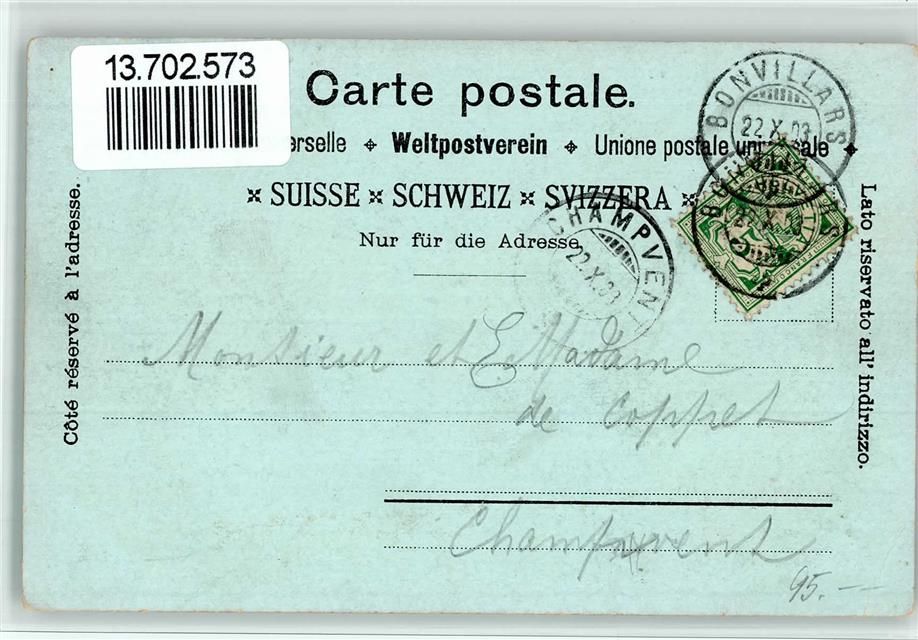 13.702.573
Carte postale.
erselle Weltpostverein Unione postale universale
SUISSE SCHWEIZ SVIZZERA
Nur für die Adresse.
Côté réservé à l'adresse.
Lato riservato all' indirizzo.
BONVILLARS
22.X.03
BONVILLARS
22.X.03
CHAMPVENT
22.X.03
Monsieur et Madame
de Coppet
Champvent
95.—